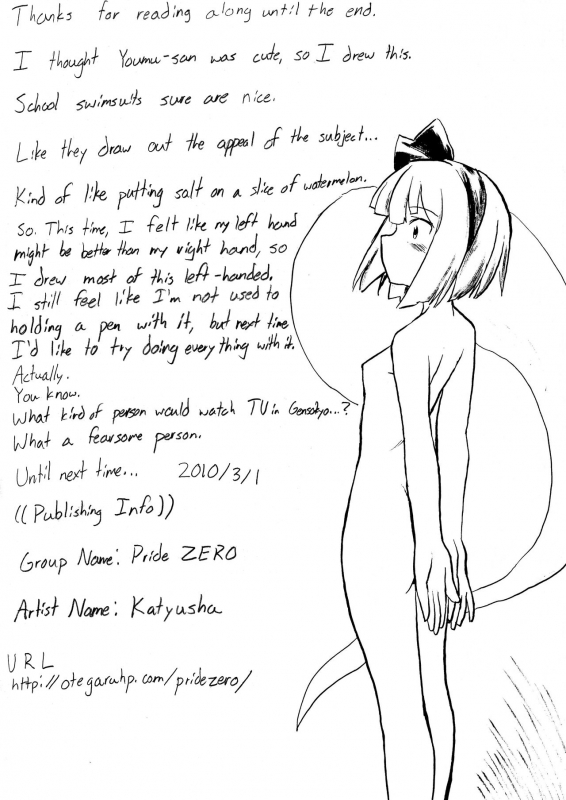 Thanks for reading along until the end.
I thought Youmu-san was cute, so I drew this.
School swimsuits sure are nice.
Like they draw out the appeal of the subject...
Kind of like putting salt on a slice of watermelon.
So. This time, I felt like my left hand
might be better than my right hand, so
I drew most of this left-handed.
I still feel like I'm not used to
holding a pen with it, but next time
I'd like to try doing everything with it.
Actually.
You know.
What kind of person would watch TV in Gensokyo...?
What a fearsome person.
Until next time... 2010/3/1
((Publishing Info))
Group Name: Pride ZERO
Artist Name: Katyusha
URL
http://otegaruhp.com/pridezero/